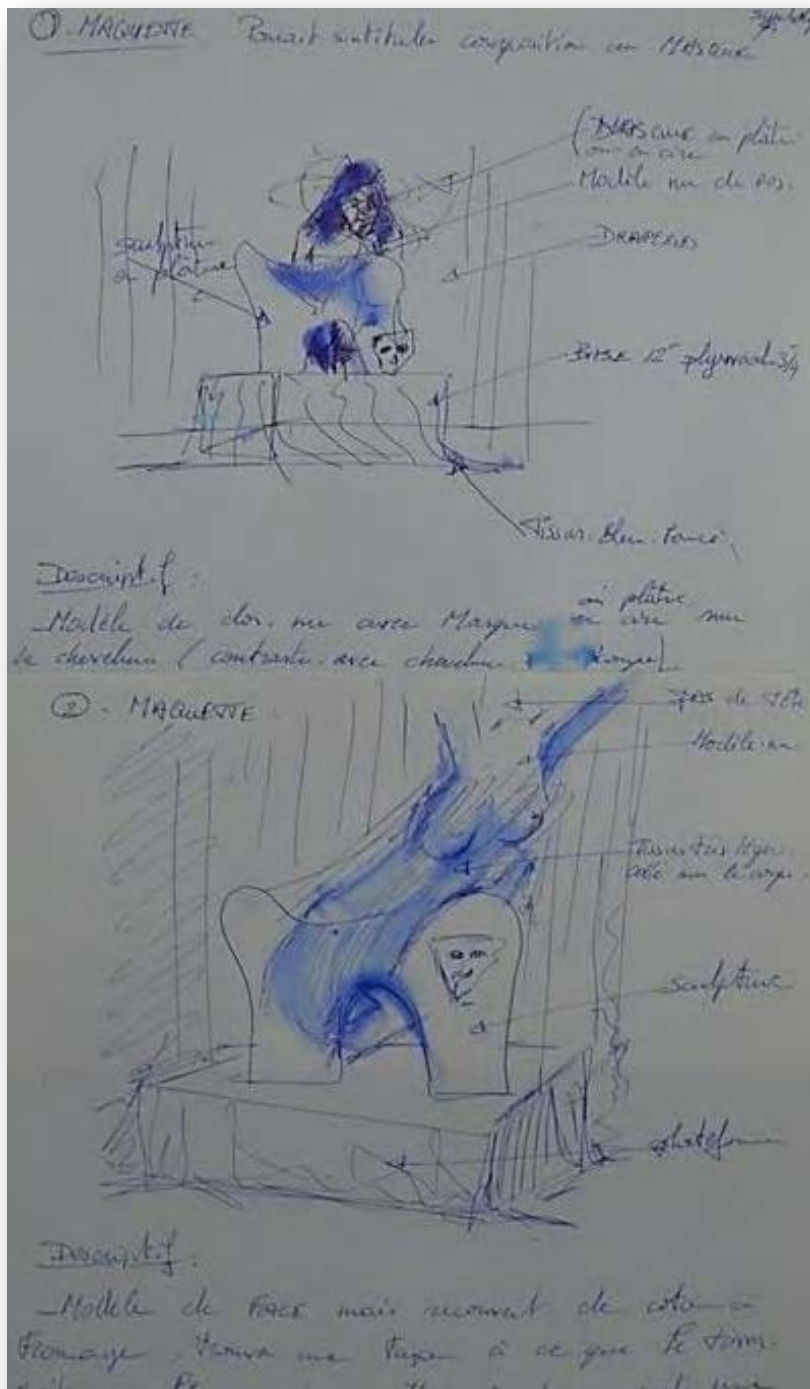 ① - MAQUETTE Pourait s'intituler composition au MASQUE
(MASQUE en plâtre
ou en cire
Modèle nu de dos.
sculpture
en plâtre
DRAPERIES
BASE 12" plywood 3/4
Tissus Bleu Foncé
Descriptif :
_Modèle de dos. nu avec Masque en plâtre
ou cire sur
la chevelure (contraste avec chevelure
② - MAQUETTE
pas de tête
Modèle nu
Tissus très léger
collé sur le corps
sculpture
plateforme
Descriptif :
_Modèle de FACE mais recouvert de coton à
Fromage. Trouver une façon à ce que le